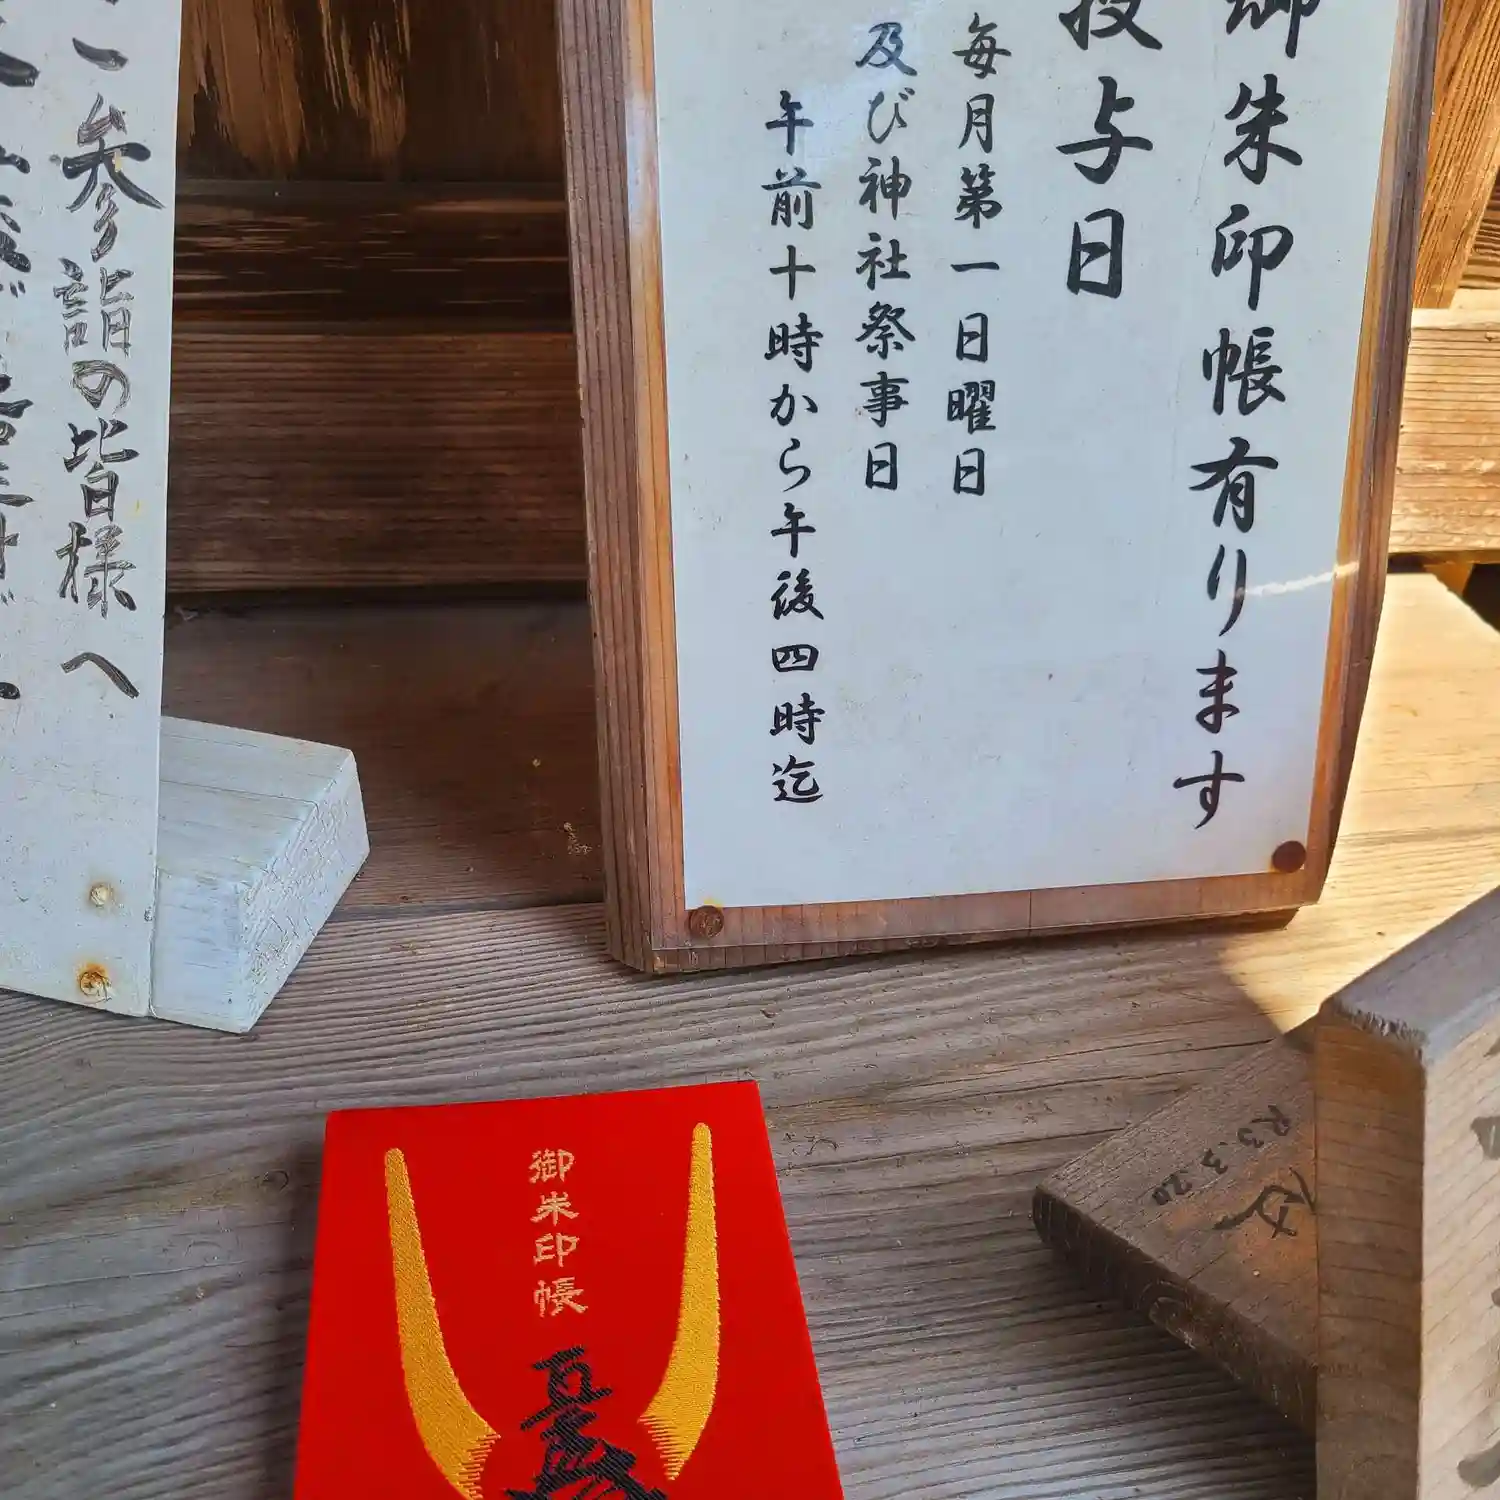 御朱印帳有ります
授与日
毎月第一日曜日
及び神社祭事日
午前十時から午後四時迄
ご参詣の皆様へ
御朱印帳